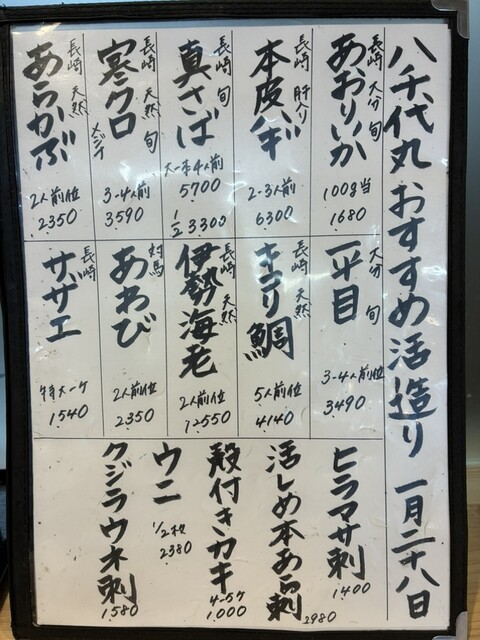 八千代丸 おすすめ活造り 一月二十八日
長崎 大分 旬
あおりいか
100g当
1680
長崎 肝入り
本皮ハギ
2-3人前
6300
長崎 旬
真さば
大一本4人前
5700
1/2 3300
長崎 天然 旬
寒クロ
メジナ
3-4人前
3590
長崎 天然
あらかぶ
2人前位
2350
大分 旬
平目
3-4人前位
3490
長崎 天然
キコリ鯛
5人前位
4140
長崎 天然
伊勢海老
2人前位
12550
対馬
あわび
2人前位
2350
長崎
サザエ
特大一ケ
1540
ヒラマサ刺
1400
活しめ本あら刺
2980
殻付きカキ
4-5ケ
1000
ウニ
1/2枚
2380
クジラウネ刺
1580